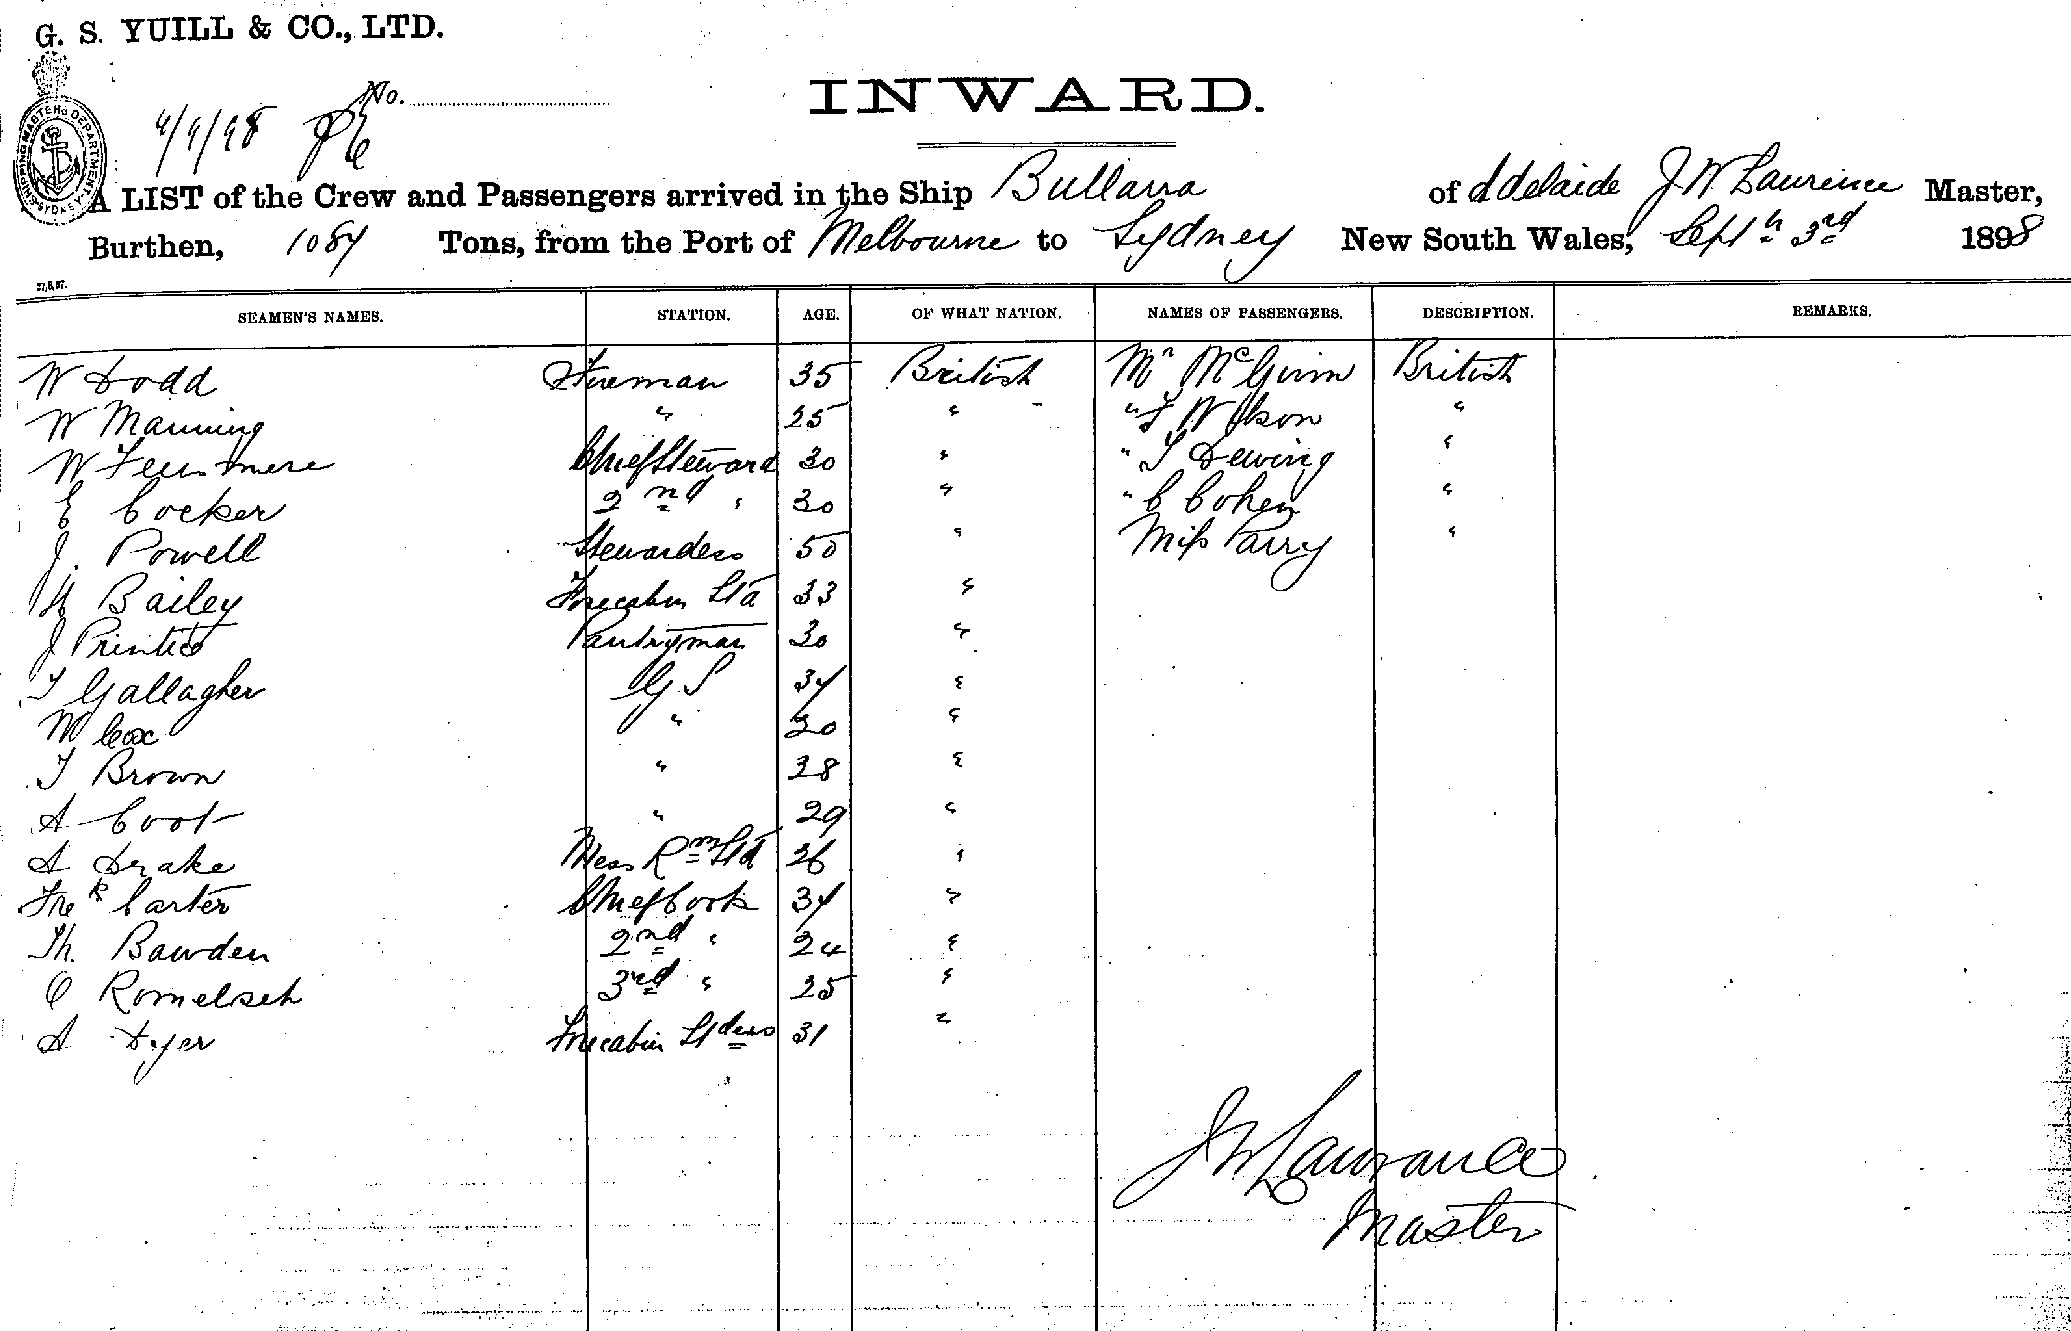 G. S. YUILL & CO., LTD.
No.
INWARD.
4/9/98
A LIST of the Crew and Passengers arrived in the Ship Bullarra of Adelaide J W Laurence Master,
Burthen, 1084 Tons, from the Port of Melbourne to Sydney New South Wales, Sept 3rd 1898
27.5.97.
SEAMEN'S NAMES. STATION. AGE. OF WHAT NATION. NAMES OF PASSENGERS. DESCRIPTION. REMARKS.
W Dodd Fireman 35 British Mr McGinn British
W Manning " 25 " " Wilson "
W Chief Steward 30 " " Dewing "
E Cocker 2nd " 30 " " C Cohen "
J. Powell Stewardess 50 " Miss Parry "
Bailey Forecabin Std 33 "
J Pantryman 30 "
T Gallagher G S 34 "
Cox " 20 "
T Brown " 28 "
A Coot " 29 "
A Drake Mess Rm Std 26 "
Fredk Carter Chief Cook 34 "
Th. Bawden 2nd " 24 "
3rd " 25 "
A Dyer Forecabin Stdess 31 "
J W Lawrance
Master